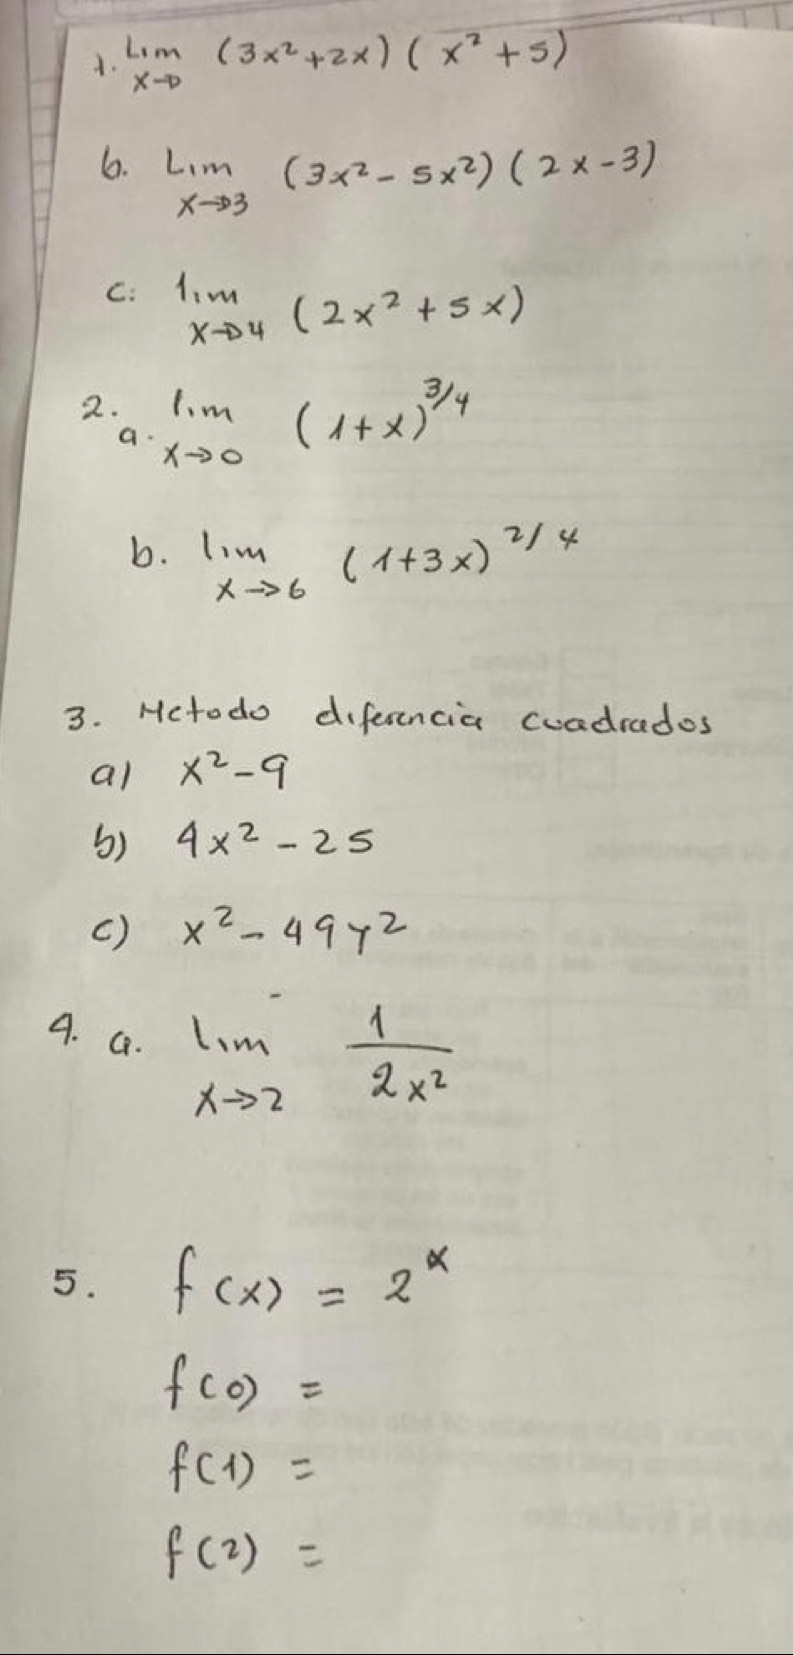 1. Lim (3x²+2x) (x²+5)
x→
b. Lim (3x²-5x²) (2x-3)
x→3
c: lim (2x²+5x)
x→4
2. a. lim (1+x)^3/4
x→0
b. lim (1+3x)^2/4
x→6
3. Metodo diferencia cuadrados
a) x²-9
b) 4x²-25
c) x²-49y²
4. a. lim 1/2x²
x→2
5. f(x) = 2^x
f(0) =
f(1) =
f(2) =